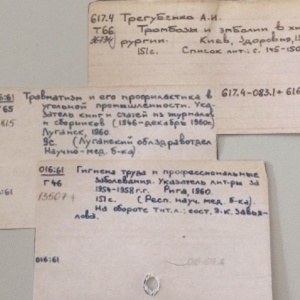 617.4 Трегубенко А.И.
Т66 Тромбозы и эмболии в хи
рургии. Киев, Здоровья, 19
151с. Список лит.: с. 145-150
617.4-083.1+616
:61) Травматизм и его профилактика в
Т65 угольной промышленности. Ука-
затель книг и статей из журналов
и сборников (1946-декабрь 1960г.)
Луганск, 1960.
9с. (Луганский облздравотдел
Научно-мед. б-ка).
:61
016:61 Гигиена труда и профессиональные
Г46 заболевания. Указатель лит-ры за
1954-1958г.г. Рига, 1960.
151с. (Респ. науч. мед. б-ка).
На обороте тит. л.: сост. Э.К. Завья-
лова.
016:61